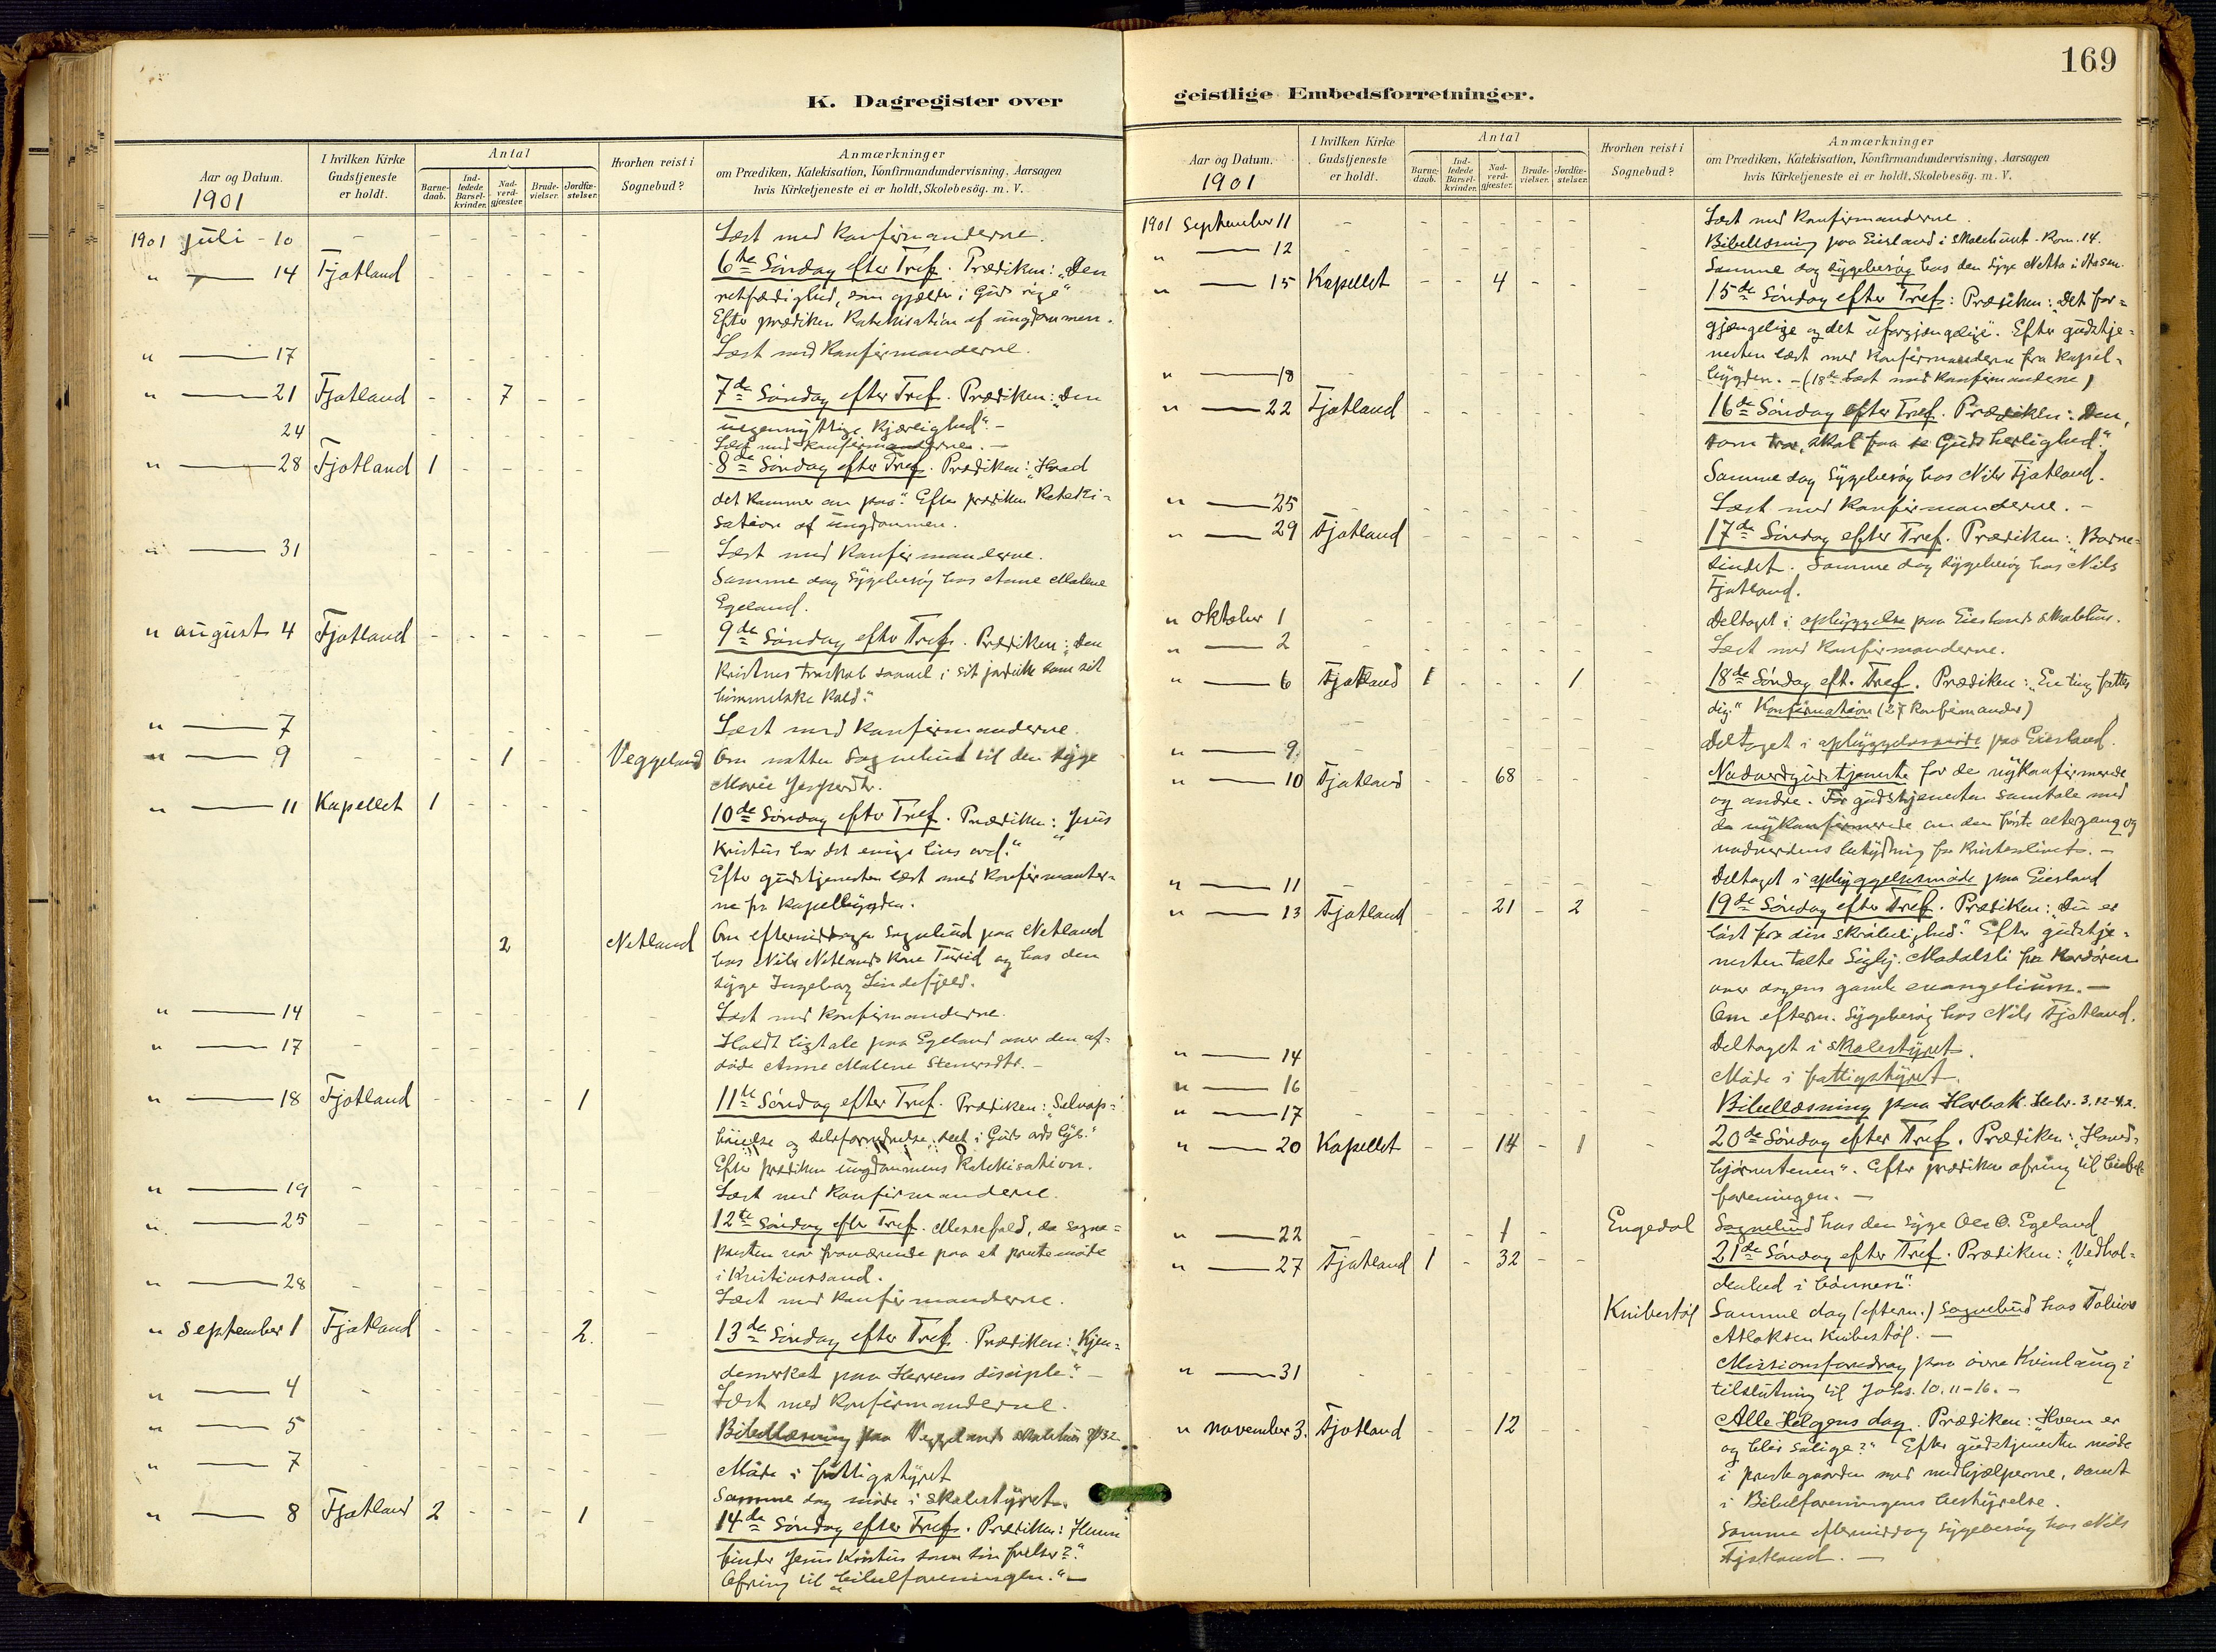 169
K. Dagregister over
geistlige Embedsforretninger.
Aar og Datum.
1901
I hvilken Kirke Gudstjeneste er holdt.
Antal
Barne-daab.
Ind-ledede Barsel-kvinder.
Nad-verd-gjæster.
Brude-vielser.
Jordfæ-stelser.
Hvorhen reist i Sognebud?
Anmærkninger
om Prædiken, Katekisation, Konfirmandundervisning, Aarsagen
hvis Kirketjeneste ei er holdt, Skolebesög. m. V.
1901 juli - 10 - Læst med konfirmanderne.
" — 14 Fjotland 6te Söndag efter Tref. Prædiken: "Den
retfærdighed, som gjælder i Guds rige"
Efter prædiken katekisation af ungdommen.
" — 17 Læst med konfirmanderne.
" — 21 Fjotland - - 7 - - 7de Söndag efter Tref. Prædiken: "Den
uegennyttige kjærlighed". -
24 Læst med konfirmanderne. -
" — 28 Fjotland 1 - - - - 8de Söndag efter Tref. Prædiken: "Hvad
det kommer an paa". Efter prædiken kateki-
sation af ungdommen.
" — 31 Læst med konfirmanderne.
Samme dag sygebesög hos Anne Malene
Egeland.
" august 4 Fjotland 9de Söndag efter Tref. Prædiken: "Den
kristnes troskab saavel i sit jordiske som sit
himmelske kald."
" — 7 Læst med konfirmanderne.
" — 9 - - - 1 - - Veggeland Om natten sognebud til den syge
Marie Jespersdtr.
" — 11 Kapellet 1 - - - - 10de Söndag efter Tref. Prædiken: "Jesus
Kristus har det evige livs ord."
Efter gudstjenesten læst med konfirmanter-
ne fra kapelbygden.
2 Netland Om eftermiddagen sognebud paa Netland
hos Nils Netlands kone Turid og hos den
syge Ingeborg Lindefjeld.
" — 14 - Læst med konfirmanderne.
" — 17 - Holdt ligtale paa Egeland over den af-
döde Anne Malene Stenersdtr. -
" — 18 Fjotland - - - - 1 11te Söndag efter Tref. Prædiken: "Selvop-
höielse og selvfornedrelse, seet i Guds ords lys."
Efter prædiken ungdommens katekisation.
" — 19 - Læst med konfirmanderne.
" — 25 - 12te Söndag efter Tref. Messefald, da sogne-
presten var fraværende paa et prestemöde
i Kristianssand.
" — 28 Læst med konfirmanderne.
" September 1 Fjotland - - - - 2. 13de Söndag efter Tref. Prædiken: "Kjen-
demerket paa Herrens disciple." -
" — 4 - Læst med konfirmanderne.
" — 5 - Bibellæsning paa Veggelands skolehus
" — 7 - Möde i fattigstyret
Samme dag möde i skolestyret.
" — 8 Fjotland 2 - - - 1 14de Söndag efter Tref. Prædiken: "Hvem
finder Jesus Kristus som sin frelser?"
Ofring til "bibelforeningen." -
Aar og Datum.
1901
I hvilken Kirke Gudstjeneste er holdt.
Antal
Barne-daab.
Ind-ledede Barsel-kvinder.
Nad-verd-gjæster.
Brude-vielser.
Jordfæ-stelser.
Hvorhen reist i Sognebud?
Anmærkninger
om Prædiken, Katekisation, Konfirmandundervisning, Aarsagen
hvis Kirketjeneste ei er holdt, Skolebesög. m. V.
1901 September 11 - Læst med konfirmanderne.
" — 12 Bibellæsning paa Eiesland i skolehuset. Rom. 14.
Samme dag sygebesög hos den syge Netta i
" — 15 Kapellet - - 4 - - 15de Söndag efter Tref: Prædiken: "Det for-
gjængelige og det uforgjængelige". Efter gudstje-
nesten læst med konfirmanderne fra kapel-
" — 18 bygden. - (18de Læst med konfirmanderne)
" — 22 Fjotland 16de Söndag efter Tref. Prædiken: "Den,
som tror, skal faa se Guds herlighed."
Samme dag sygebesög hos Nils Fjotland.
" — 25 Læst med konfirmanderne. -
" — 29 Fjotland 17de Söndag efter Tref. Prædiken: "Barne-
sindet. Samme dag sygebesög hos Nils
Fjotland.
" oktober 1 Deltaget i opbyggelse paa Eieslands skolehus.
" — 2 Læst med konfirmanderne.
" — 6 Fjotland 1 - - - 1 18de Söndag eft. Tref. Prædiken: "En ting fattes
dig." Konfirmation (27 konfirmander)
" — 9 Deltaget i opbyggelsesmöde paa Eiesland.
" — 10 Fjotland - - 68 Nadverdgudstjeneste for de nykonfirmerede
og andre. För gudstjenesten samtale med
de nykonfirmerede om den förste altergang og
nadverdens betydning for kristenlivet. -
" — 11 Deltaget i opbyggelsesmöde paa Eiesland
" — 13 Fjotland - - 21 - 2 19de Söndag efter Tref. Prædiken: "Du er
löst fra din skröbelighed." Efter gudstje-
nesten talte Sigbj. Modalsli fra
over dagens gamle evangelium. -
Om efterm. sygebesög hos Nils Fjotland.
" — 14 Deltaget i skolestyret.
" — 16 Möde i fattigstyret.
" — 17 Bibellæsning paa Hebr. 3, 12-4,2.
" — 20 Kapellet - - 14 - 1 20de Söndag efter Tref. Prædiken: "Hoved-
hjörnestenen". Efter prædiken ofring til bibel-
foreningen. -
" — 22 - - - 1 - Engedal Sognebud hos den syge Ole O. Egeland
" — 27 Fjotland 1 - 32 - - 21de Söndag efter Tref. Prædiken: "Vedhol-
denhed i bönnen".
Knibestöl Samme dag (efterm.) sognebud hos Tobias
Atlaksen Knibestöl. -
" — 31 Missionsforedrag paa övre Kvinlaug i
tilslutning til Johs. 10. 11-16. -
" november 3. Fjotland - - 12 - - Alle Helgens dag. Prædiken: "Hvem er
og blir salige?" Efter gudstjenesten möde
i prestegaarden med medhjælperne, samt
i Bibelforeningens bestyrelse.
Samme eftermiddag sygebesög hos Nils
Fjotland. -